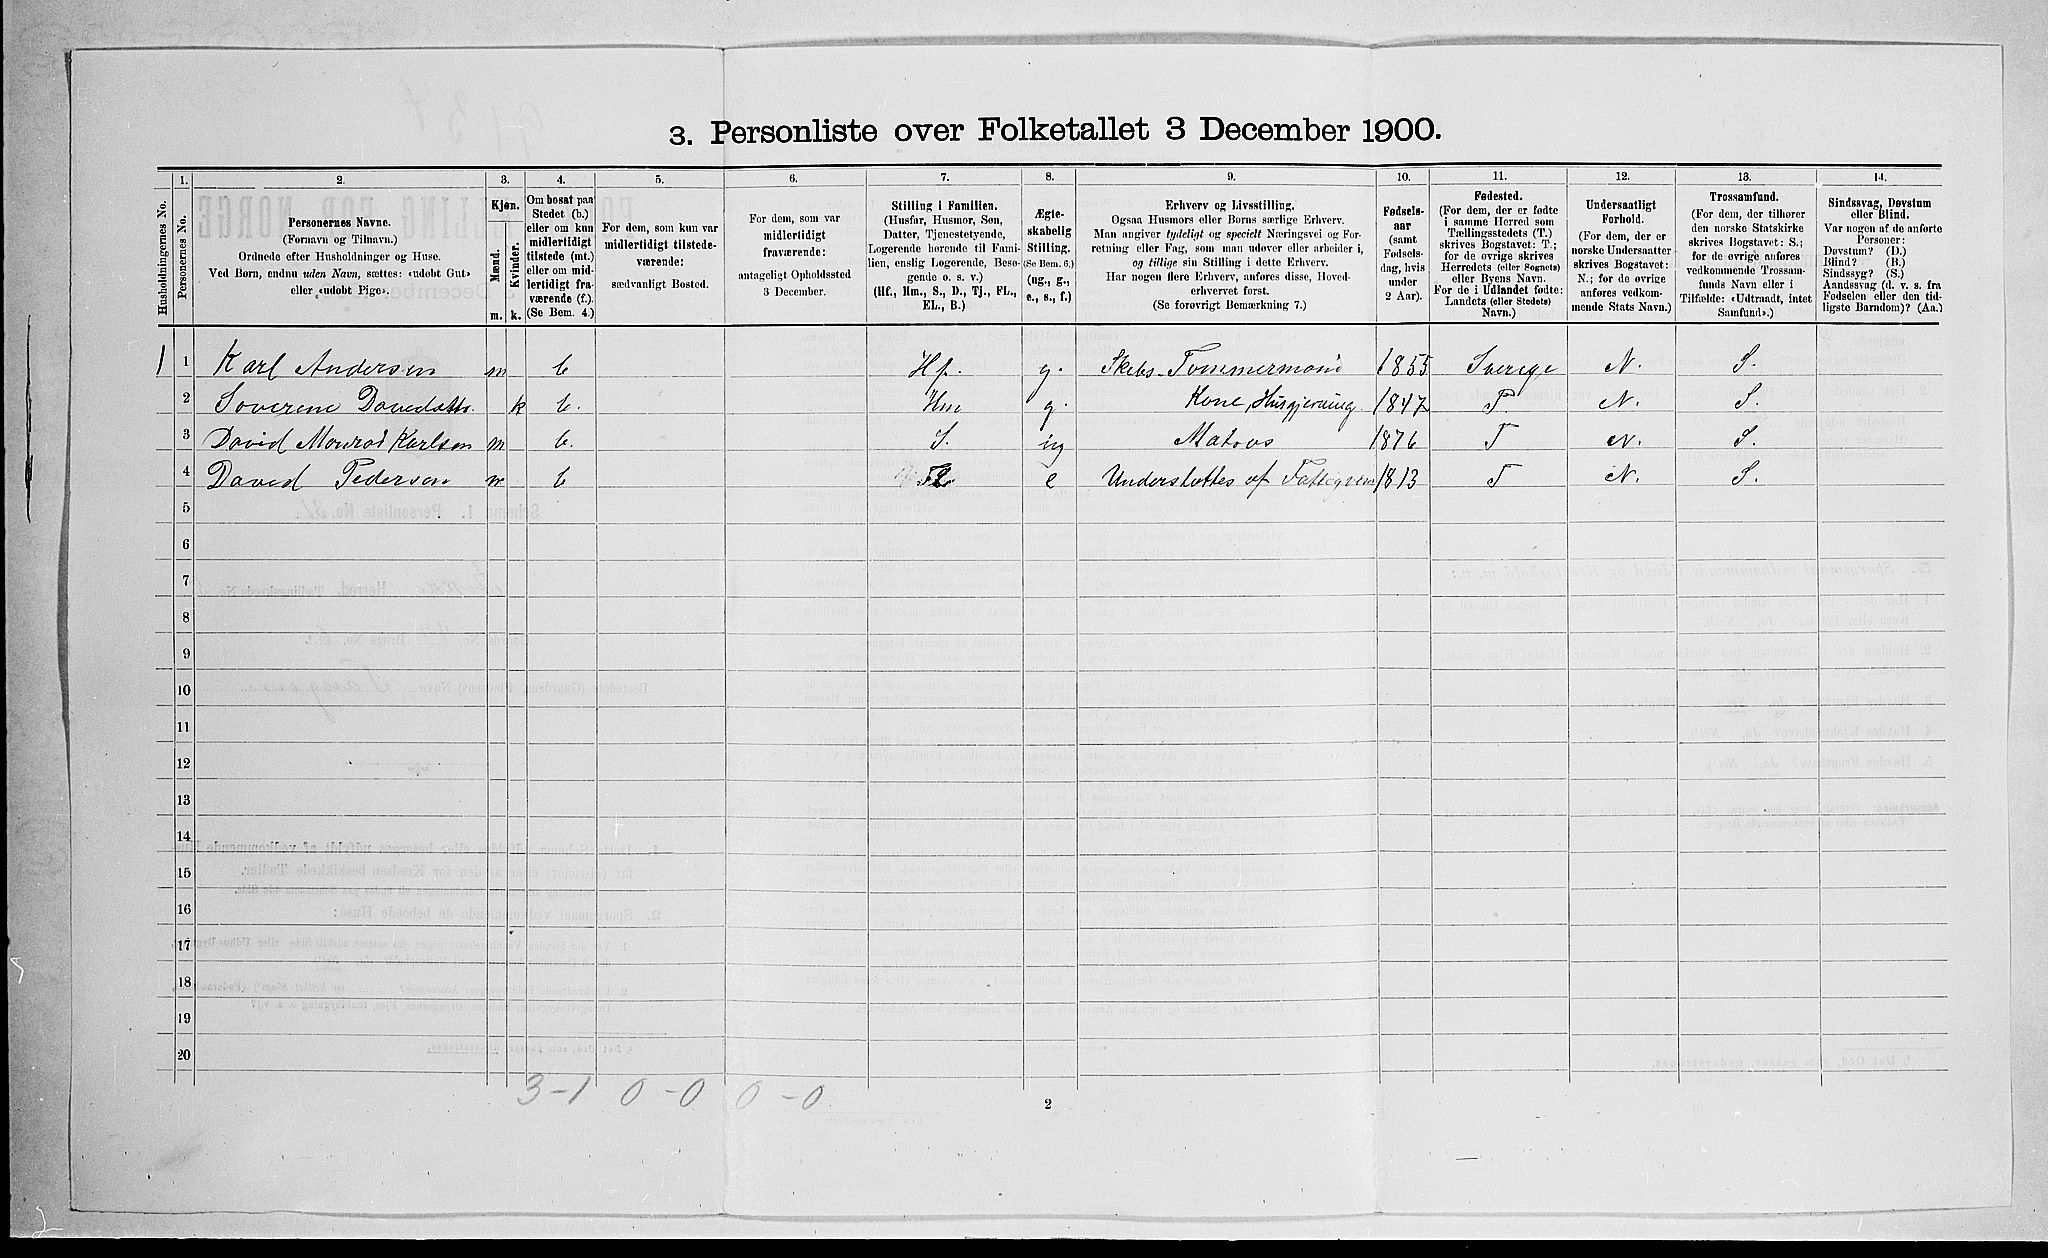 3. Personliste over Folketallet 3 December 1900.
1. 2. 3. 4. 5. 6. 7. 8. 9. 10. 11. 12. 13. 14.
Husholdningernes No.
Personernes No.
Personernes Navne.
(Fornavn og Tilnavn.)
Ordnede efter Husholdninger og Huse.
Ved Børn, endnu uden Navn, sættes: «udøbt Gut»
eller «udøbt Pige».
Kjøn.
Mænd.
Kvinder.
m. k.
Om bosat paa
Stedet (b.)
eller om kun
midlertidigt
tilstede (mt.)
eller om mid-
lertidigt fra-
værende (f.).
(Se Bem. 4.)
For dem, som kun var
midlertidigt tilstede-
værende:
sædvanligt Bosted.
For dem, som var
midlertidigt
fraværende:
antageligt Opholdssted
3 December.
Stilling i Familien.
(Husfar, Husmor, Søn,
Datter, Tjenestetyende,
Logerende hørende til Fami-
lien, enslig Logerende, Besø-
gende o. s. v.)
(Hf., Hm., S., D., Tj., FL.,
EL., B.)
Ægte-
skabelig
Stilling.
(Se Bem. 6.)
(ug., g.,
e., s., f.)
Erhverv og Livsstilling.
Ogsaa Husmors eller Børns særlige Erhverv.
Man angiver tydeligt og specielt Næringsvei og For-
retning eller Fag, som man udøver eller arbeider i,
og tillige sin Stilling i dette Erhverv.
Har nogen flere Erhverv, anføres disse, Hoved-
erhvervet først.
(Se forøvrigt Bemærkning 7.)
Fødsels-
aar
(samt
Fødsels-
dag, hvis
under
2 Aar).
Fødested.
(For dem, der er fødte
i samme Herred som
Tællingsstedets (T.)
skrives Bogstavet: T.;
for de øvrige skrives
Herredets (eller Sognets)
eller Byens Navn.
For de i Udlandet fødte:
Landets (eller Stedets)
Navn.)
Undersaatligt
Forhold.
(For dem, der er
norske Undersaatter
skrives Bogstavet:
N.; for de øvrige
anføres vedkom-
mende Stats Navn.)
Trossamfund.
(For dem, der tilhører
den norske Statskirke
skrives Bogstavet: S.;
for de øvrige anføres
vedkommende Trossam-
funds Navn eller i
Tilfælde: «Udtraadt, intet
Samfund».)
Sindssvag, Døvstum
eller Blind.
Var nogen af de anførte
Personer:
Døvstum? (D.)
Blind? (B.)
Sindssyg? (S.)
Aandssvag (d. v. s. fra
Fødselen eller den tid-
ligste Barndom)? (Aa.)
1 1 Karl Andersen m b Hf. g. Skibs-Tømmermand 1855 Sverige N. S.
2 Severine Davidsdtr. k b. Hm g. Kone, Husgjerning. 1847 T. N. S.
3 David Monrad Karlsen m b. S. ug Matros 1876 T N. S.
4 David Pedersen m b FL e Understøttes af Fattigvæs 1813 T N. S.
5
6
7
8
9
10
11
12
13
14
15
16
17
18
19
20
3-1 0-0 0-0
2